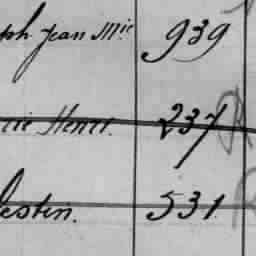 ph Jean Mie 939
cie Henri. 237
lestin. 531